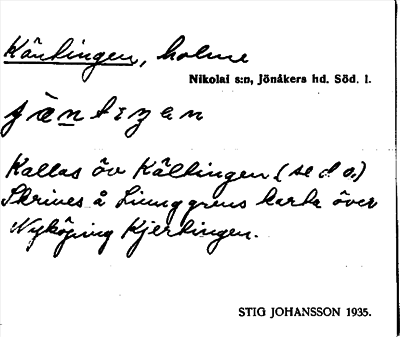 Käntingen, holme
Nikolai s:n, Jönåkers hd. Söd. l.
Kallas öv Källingen (se d. o.)
Skrives å Ljunggrens karta över
Nyköping Kjertingen.
STIG JOHANSSON 1935.